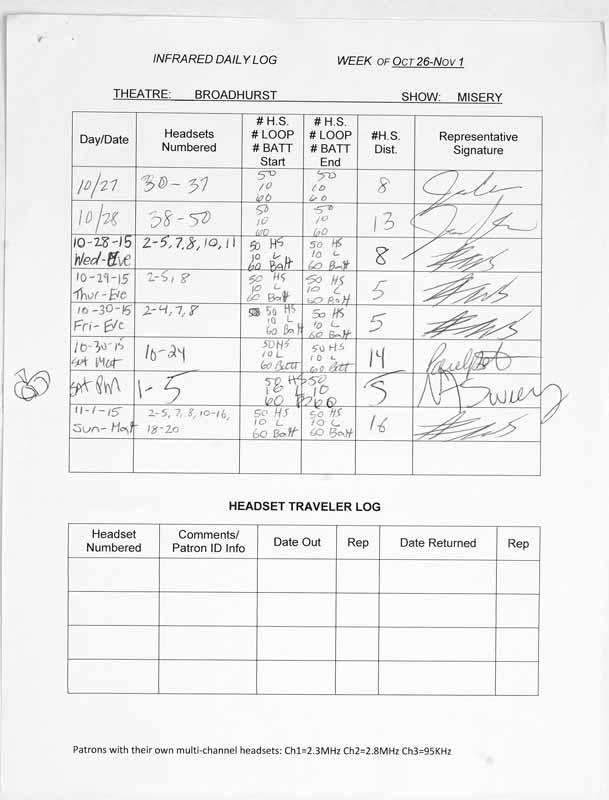 INFRARED DAILY LOG WEEK OF OCT 26-NOV 1
THEATRE: BROADHURST SHOW: MISERY
Day/Date Headsets Numbered # H.S. # LOOP # BATT Start # H.S. # LOOP # BATT End #H.S. Dist. Representative Signature
10/27 30-37 50 10 60 50 10 60 8
10/28 38-50 50 10 60 50 10 60 13
10-28-15 Wed-Eve 2-5,7,8,10,11 50 HS 10 L 60 Batt 50 HS 10 L 60 Batt 8
10-29-15 Thur-Eve 2-5,8 50 HS 10 L 60 Batt 50 HS 10 L 60 Batt 5
10-30-15 Fri-Eve 2-4,7,8 50 HS 10 L 60 Batt 50 HS 10 L 60 Batt 5
10-30-15 Sat Mat 10-24 50HS 10L 60Batt 50HS 10L 60Batt 14
Sat PM 1-5 50 HS 10 L 60 B 50 10 60 5
11-1-15 Sun-Matt 2-5,7,8,10-16, 18-20 50 HS 10 L 60 Batt 50 HS 10 L 60 Batt 16
HEADSET TRAVELER LOG
Headset Numbered Comments/ Patron ID Info Date Out Rep Date Returned Rep
Patrons with their own multi-channel headsets: Ch1=2.3MHz Ch2=2.8MHz Ch3=95KHz